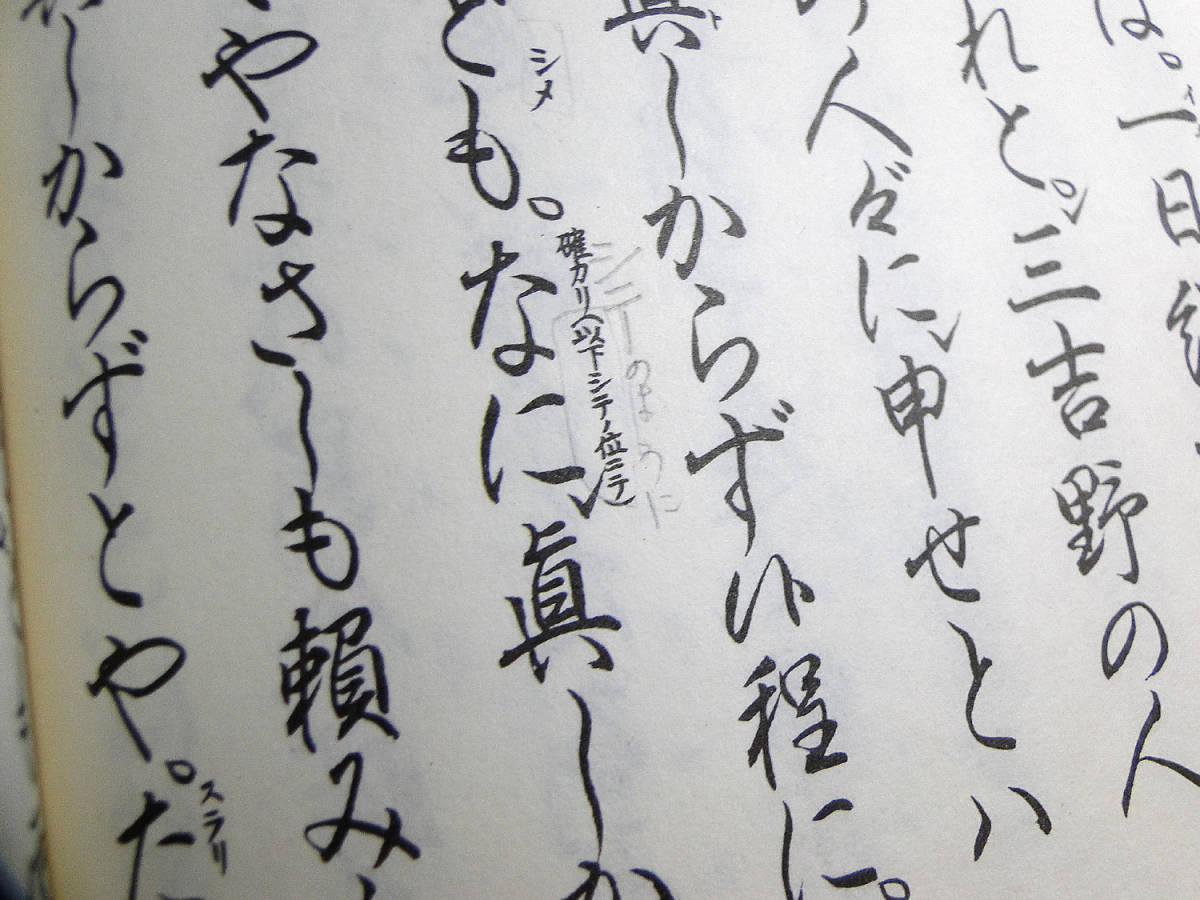 は。一日
れと。三吉野の人
の人々に申せとハ
眞しからず候程に。
シメ
とも。なに眞しか
確カリ(以下シテノ位ニテ)
シニーのように
やなさしも頼み
しからずとや。た
スラリ